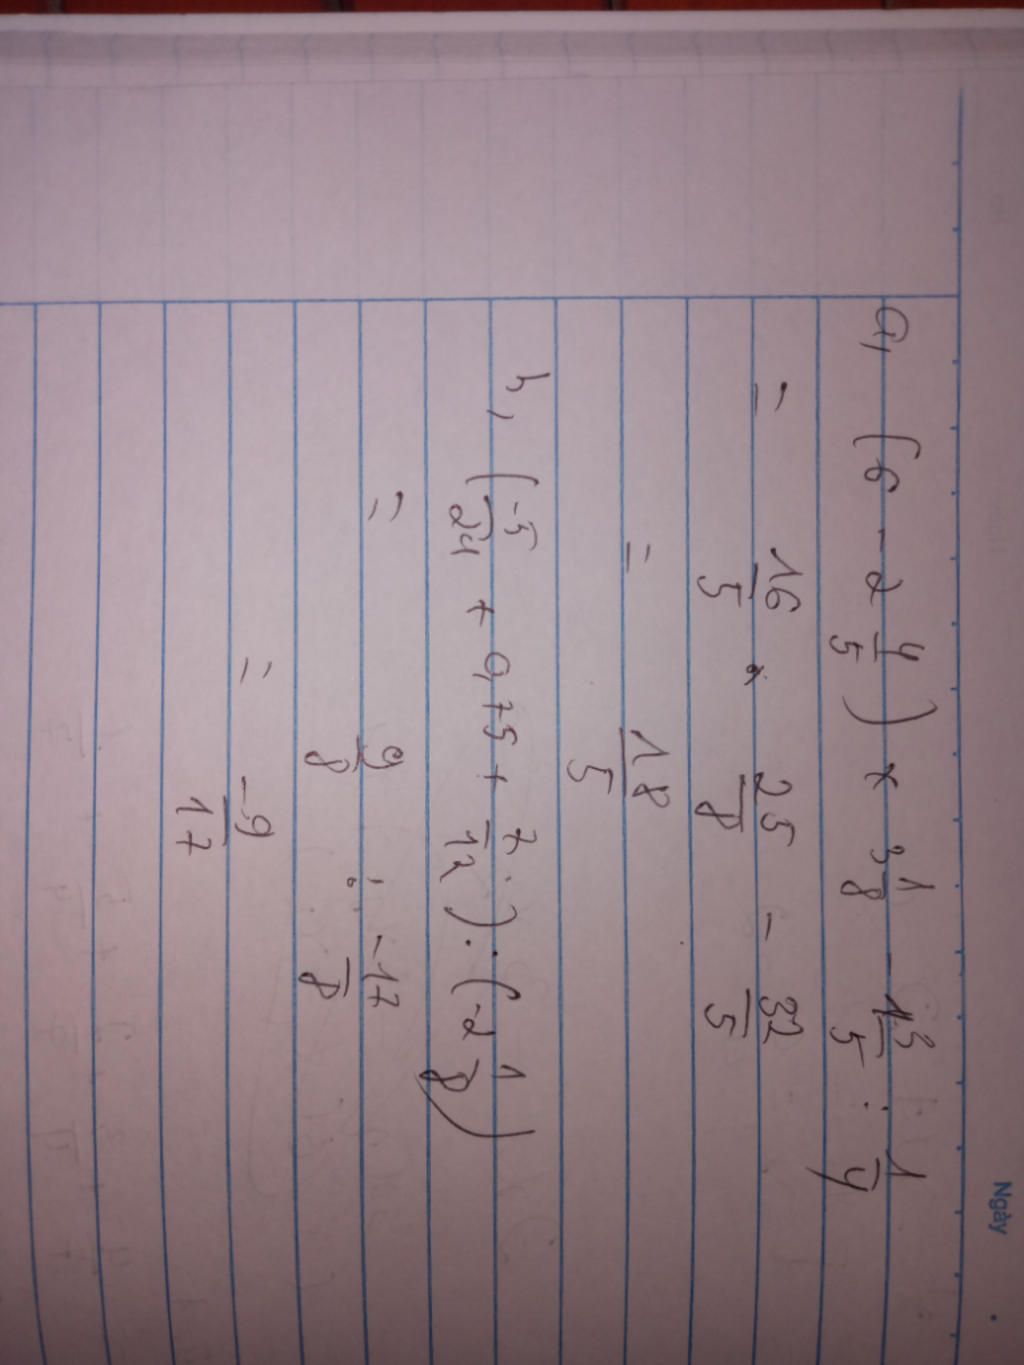 Ngày
a, (6 - 2 4/5) × 3 1/8 - 1 3/5 : 1/4
= 16/5 × 25/8 - 32/5
= 18/5
b, (-5/24 + 0,75 + 7/12) : (-2 1/8)
= 9/8 : -17/8
= -9/17